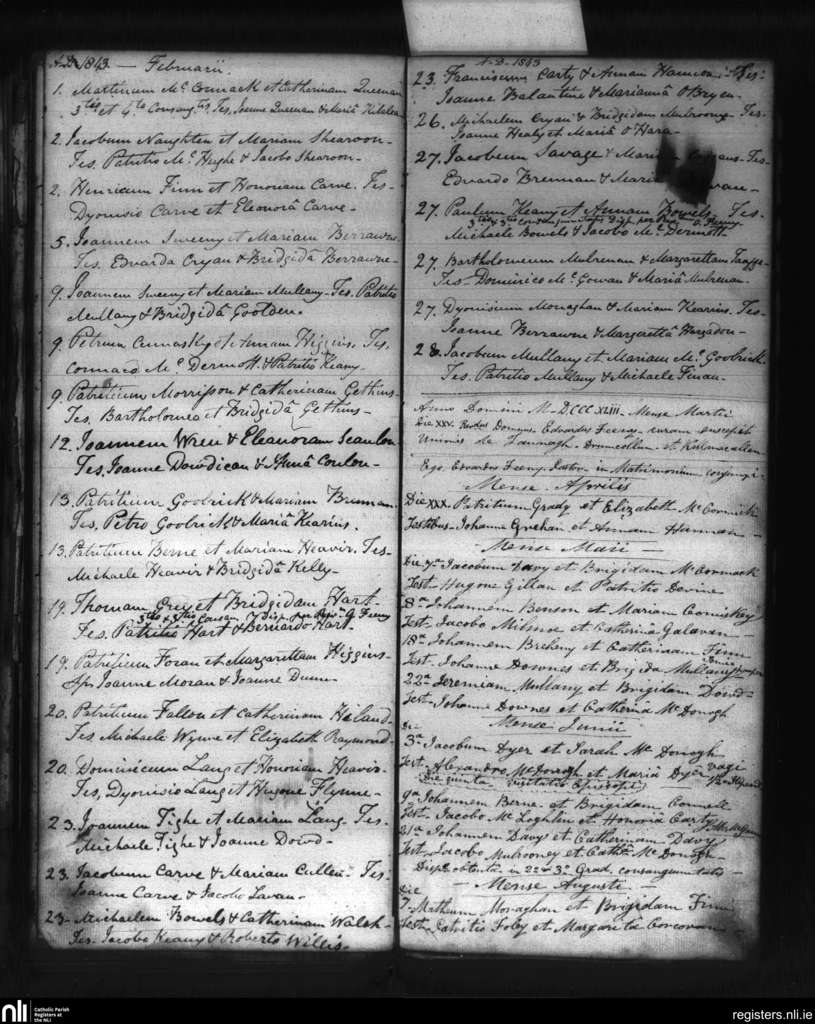 A.D. 1843. — Februarii.
1. Martinum McCormack et Catherinam Queenan
3tio et 4to Consang. Tes. Joanne Queenan & Mariâ
2. Jacobum Naughten et Mariam Shearoon-
Tes. Patritio McHughe & Jacobo Shearoon-
2. Henricum Finn et Honoriam Carve. Tes-
Dyonisio Carve et Eleonorâ Carve-
5. Joannem Sweeny et Mariam Berrawne
Tes. Edvardo Cryan & Bridgidâ Berrawne-
9. Joannem Sweeny et Mariam Mullany- Tes. Patritio
Mullany & Bridgidâ Goolden-
9. Petrum et Annam Higgins. Tes.
McDermott & Patritio Keany-
9. Patritium Morrisson & Catherinam Gethins-
Tes. Bartholomea et Bridgidâ Gethins-
12. Joannem Wren & Eleanoram Scanlon
Tes. Joanne Dowdican & Annâ Conlon-
13. Patritium Goolrick & Mariam Brennan.
Tes. Petro Goolrick & Mariâ Kearins.
13. Patritium Berne et Mariam Heavir. Tes-
Michaele Heavir & Bridgidâ Kelly-
19. Thomam Grey et Bridgidam Hart-
3tio & 3tio Consan.
Tes. Patritio Hart & Bernardo Hart-
19. Patritium Foran et Margarettam Higgins-
Joanne Moran & Joanne Dunn-
20. Patritium Fallon et Catherinam
Tes Michaele Wyme et Elizabeth Raymond-
20. Dominicum Lang et Honoriam Heavir-
Tes, Dyonisio Lang et Hugone Flynne-
23. Joannem Tighe et Mariam Lang. Tes.
Michaele Tighe & Joanne Dowd-
23. Jacobum Carve & Mariam Cullen- Tes-
Joanne Carve & Jacobo Lavan-
23- Michaelem Bowels & Catherinam Walsh-
Tes- Jacobo Keany & Roberto Willis-
A.D. 1843
23. Franciscum Carty & Annam Tes-
Joanne Balantine & Mariannâ O'Bryen-
26. Michaelem Cryan & Bridgidam Tes-
Joanne Healy et Mariâ O'Hara-
27. Jacobum Savage & Tes-
Edvardo Brennan &
27. Paulum Keany et Annam Bowels. Tes.
Michaele Bowels & Jacobo McDermott-
27. Bartholomeum Mulrenan & Margarettam Taaffe-
Tes- Dominico McGowan & Mariâ Mulrenan.
27. Dyonisium Monaghan & Mariam Kearins. Tes.
Joanne Berrawne & Margarettâ Hargadon-
28. Jacobum Mullany et Mariam McGoolrick
Tes. Patritio Mullany & Michaele Finan-
Anno Domini M-DCCC XLIII- Mense Martii
Die XXV. Edvardus Feeny- curam suscepit
Unionis de Drumcollum- et
Ego Edvardus Feeny Pastor- in Matrimonium conjunxi-
Mense Aprilis
Die XXX. Patritium Grady et Elizabeth McCormick
Testibus- Johanne Grehan et Annam Hannan-
— Mense Maii —
Die 7a Jacobum Davy et Brigidam McCormack
Test- Hugone Gillan et Patritio Devine
8a- Johannem Benson et Mariam
Test. Jacobo et Catherina Galavan
18a Johannem Breheny et Catherinam Finn
Test. Johanne Downes et Brigida Mullany
22a Jeremiam Mullany et Brigidam Dowd-
Test- Johanne Downes et Catherina McDonogh
— Mense Junii —
Die
3a- Jacobum Dyer et Sarah McDonogh
Test- Alexandro McDonogh et Maria Dyer vagi
(Die quinta visitatio Episcopi)
9a Johannem Berne- et Brigidam Connell
Test. Jacobo McLoghlin et Honoria Carty
21a Johannem Davy et Catherinam Davy
Test- Jacobo Mulrooney et Cathâ McDonogh-
Dispe obtenta in 2o et 3o Grad. consanguinitatis-
— Mense Augusti —
Die
7- Matheum Monaghan et Brigidam Finn
Test- Patritio Foley et Margarita Corcoran-
nli
Catholic Parish
Registers at
the NLI
registers.nli.ie